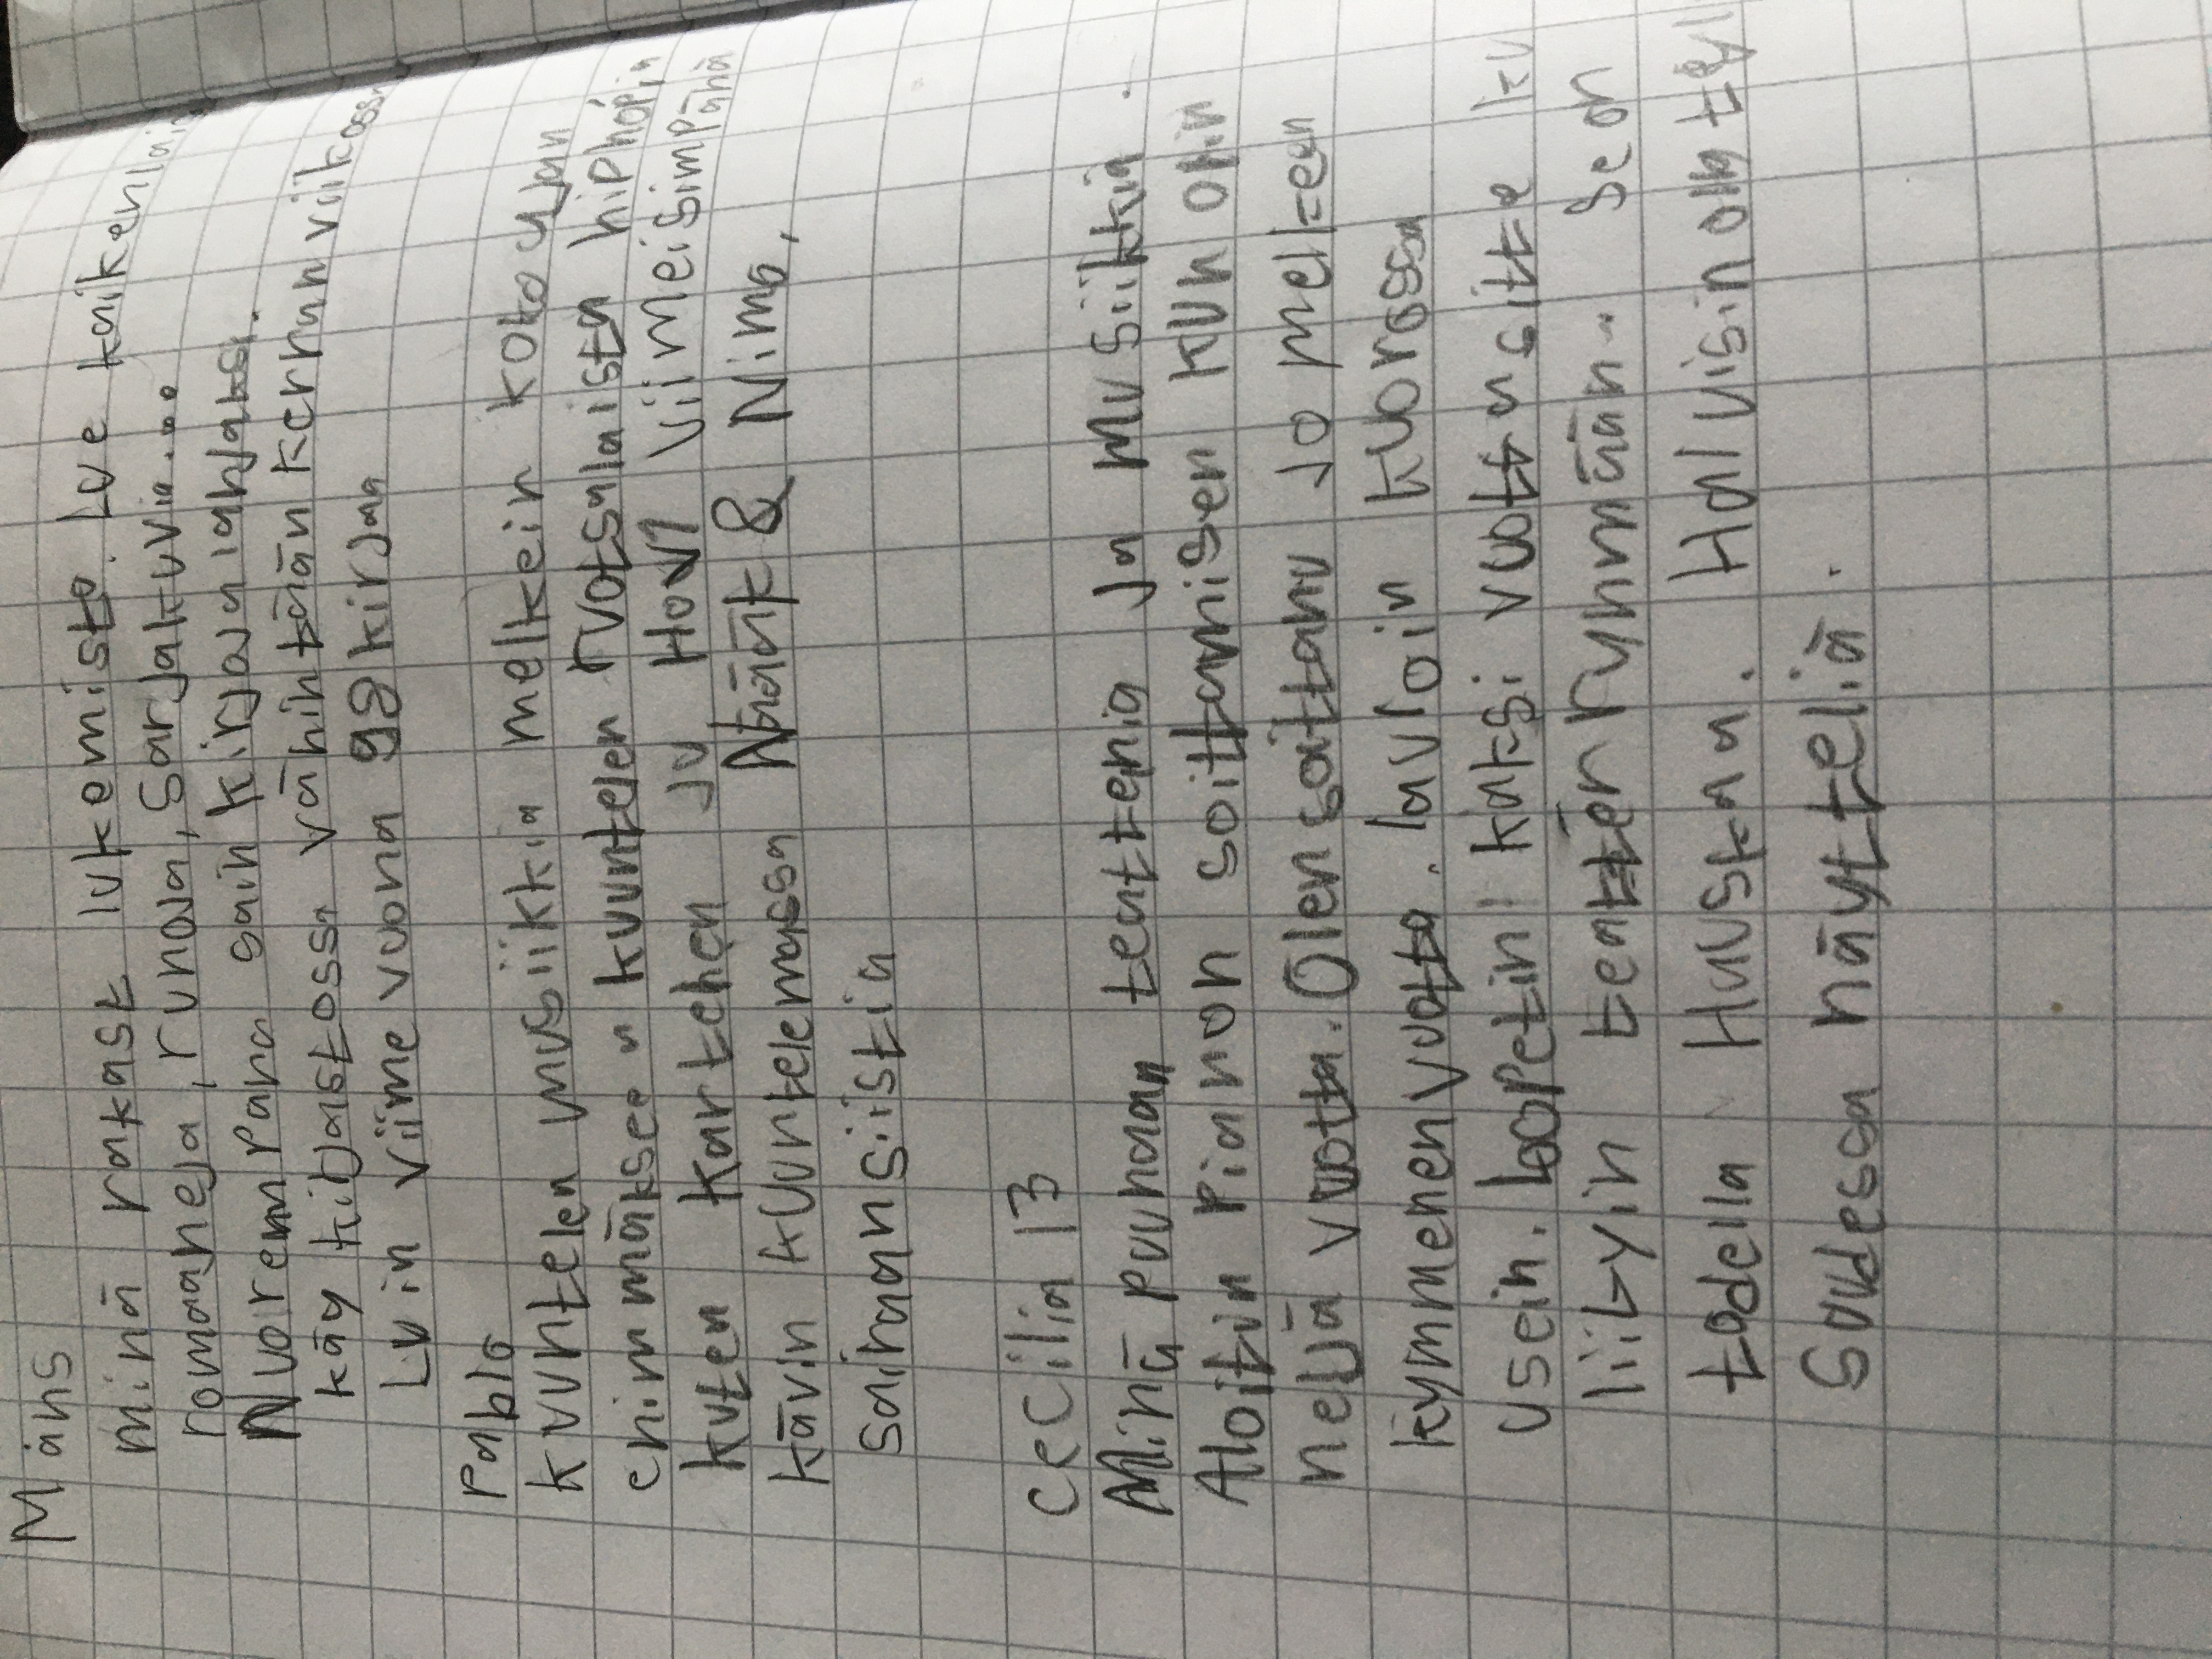 Måns
minä rakast lukemisto. Lue kaikenlain
romaaneja, runoja, sarjakuvia....
Nuorempana sain kirjoja lahjaksi.
käy kirjastossa vähintään kerran viikossa
Luin viime vuona 98 kirjaa
Pablo
kuuntelen musiikkia melkein koko ajan
enimmäksee n kuuntelen ruotsalaista hiphopia
kuten Kartehen ja Hov1 viimeisimpänä
kävin kuuntelemassa Näänk & Nimo,
sairaansiistia
Cecilia 13
Minä puuhaan teatteria ja musiikkia.
Aloitin pianon soittamisen kun olin
neljä vuotta. Olen soittanu jo melkeen
kymmenen vuotta. lauloin kuorossa
usein. loopetin kaksi vuottansitte ku
liityin teatteri ryhmään. Se on
todella Hauskaa. Haluisin olla
Saudesa näytteliä.